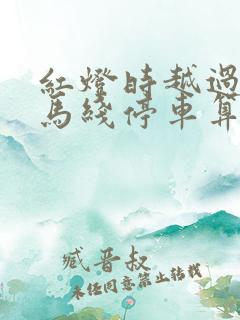 紅燈時越過
馬綫停車算
臧晋叔
未经同意禁止转载